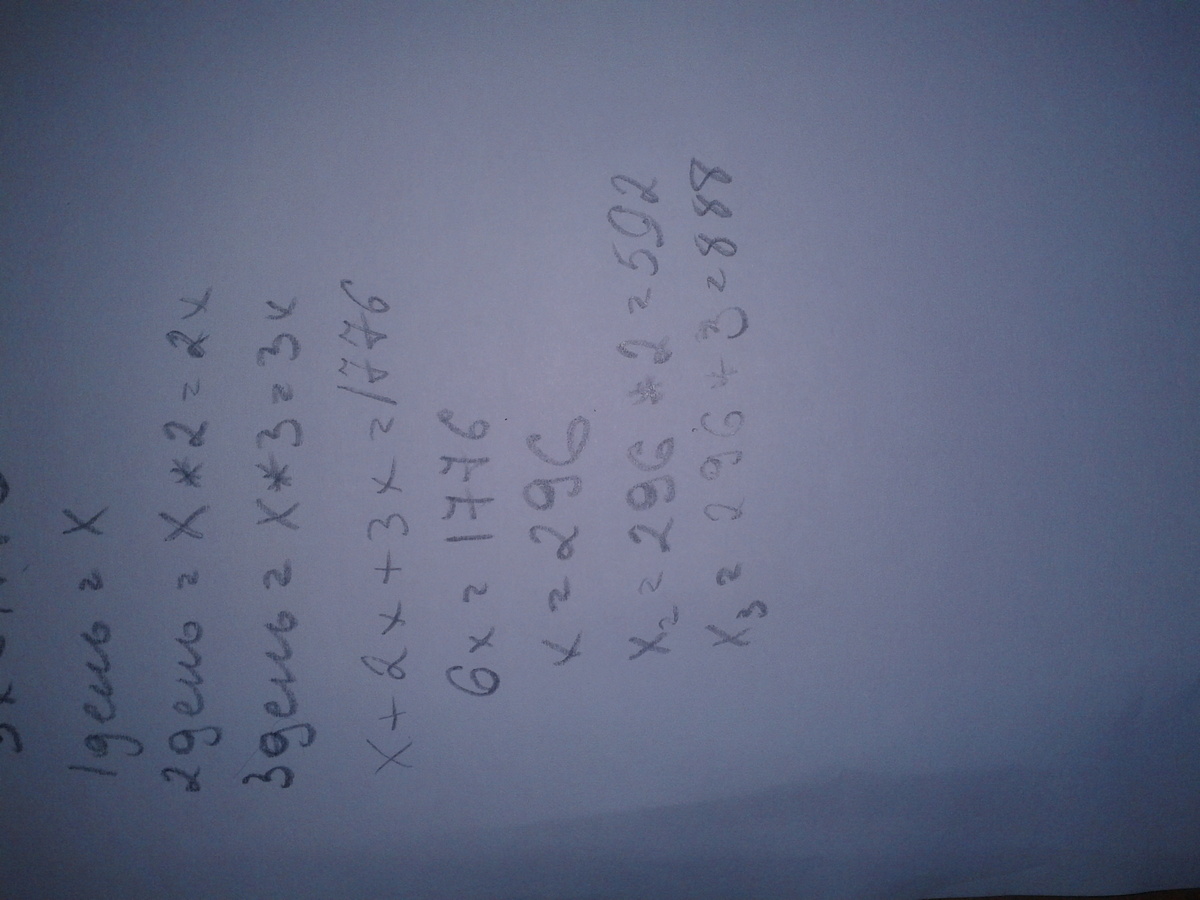 1день = x
2день = x * 2 = 2x
3день = x * 3 = 3x
x + 2x + 3x = 1776
6x = 1776
x = 296
x₂ = 296 * 2 = 592
x₃ = 296 * 3 = 888